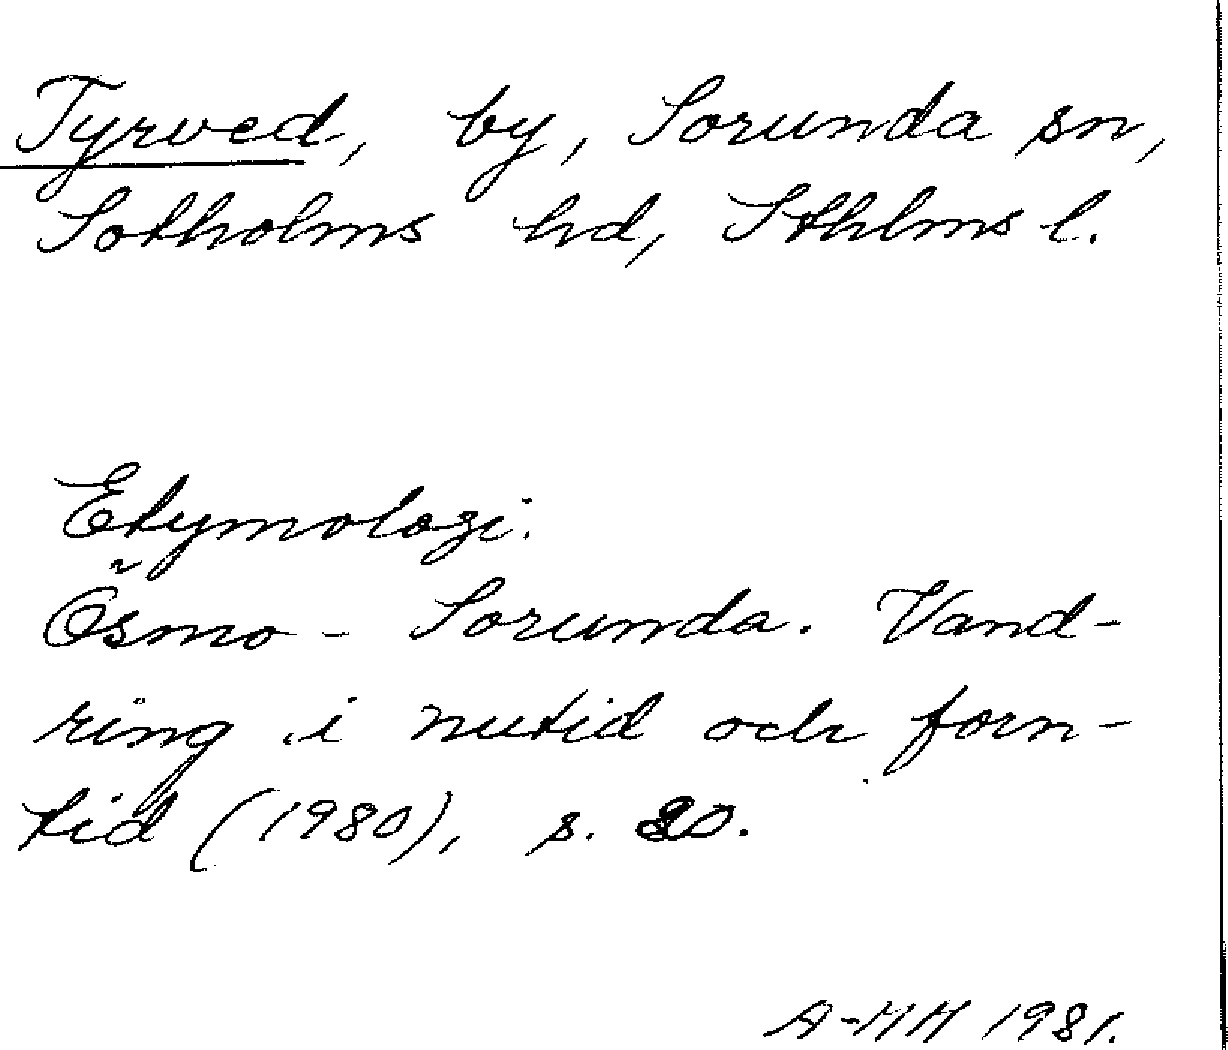 Tyrved, by, Sorunda sn,
Sotholms hd, Sthlms l.
Etymologi.
Ösmo - Sorunda. Vand-
ring i nutid och forn-
tid (1980), s.
A-MH 1981.